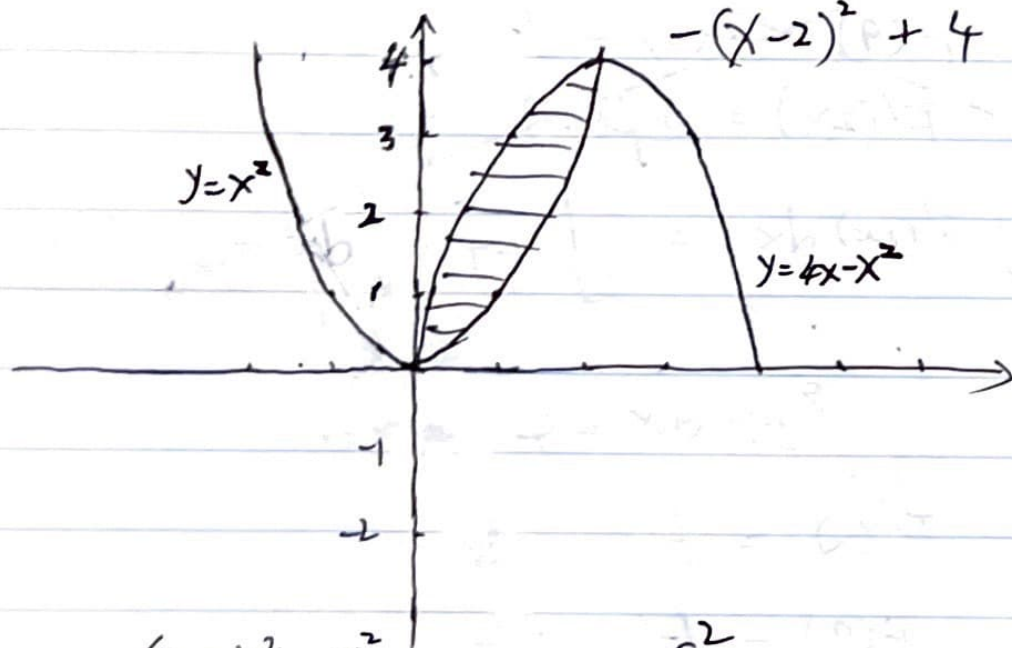 -(x-2)² + 4
4
3
y=x²
2
1
y=4x-x²
-1
-2